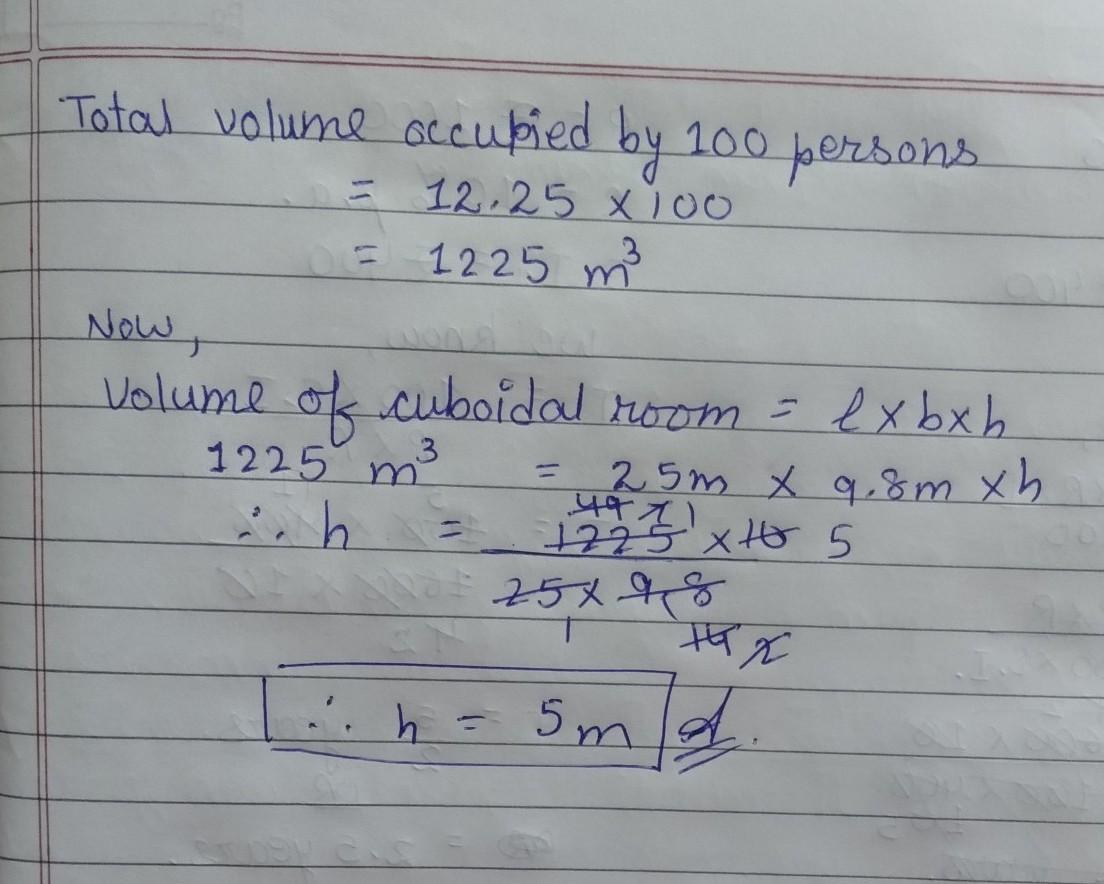 Total volume occupied by 100 persons
= 12.25 × 100
= 1225 m³
Now,
Volume of cuboidal room = l × b × h
1225 m³ = 25m × 9.8m × h
49 7 1
∴ h = 1225 × 10 5
25 × 9.8
1 14 2
∴ h = 5m d.